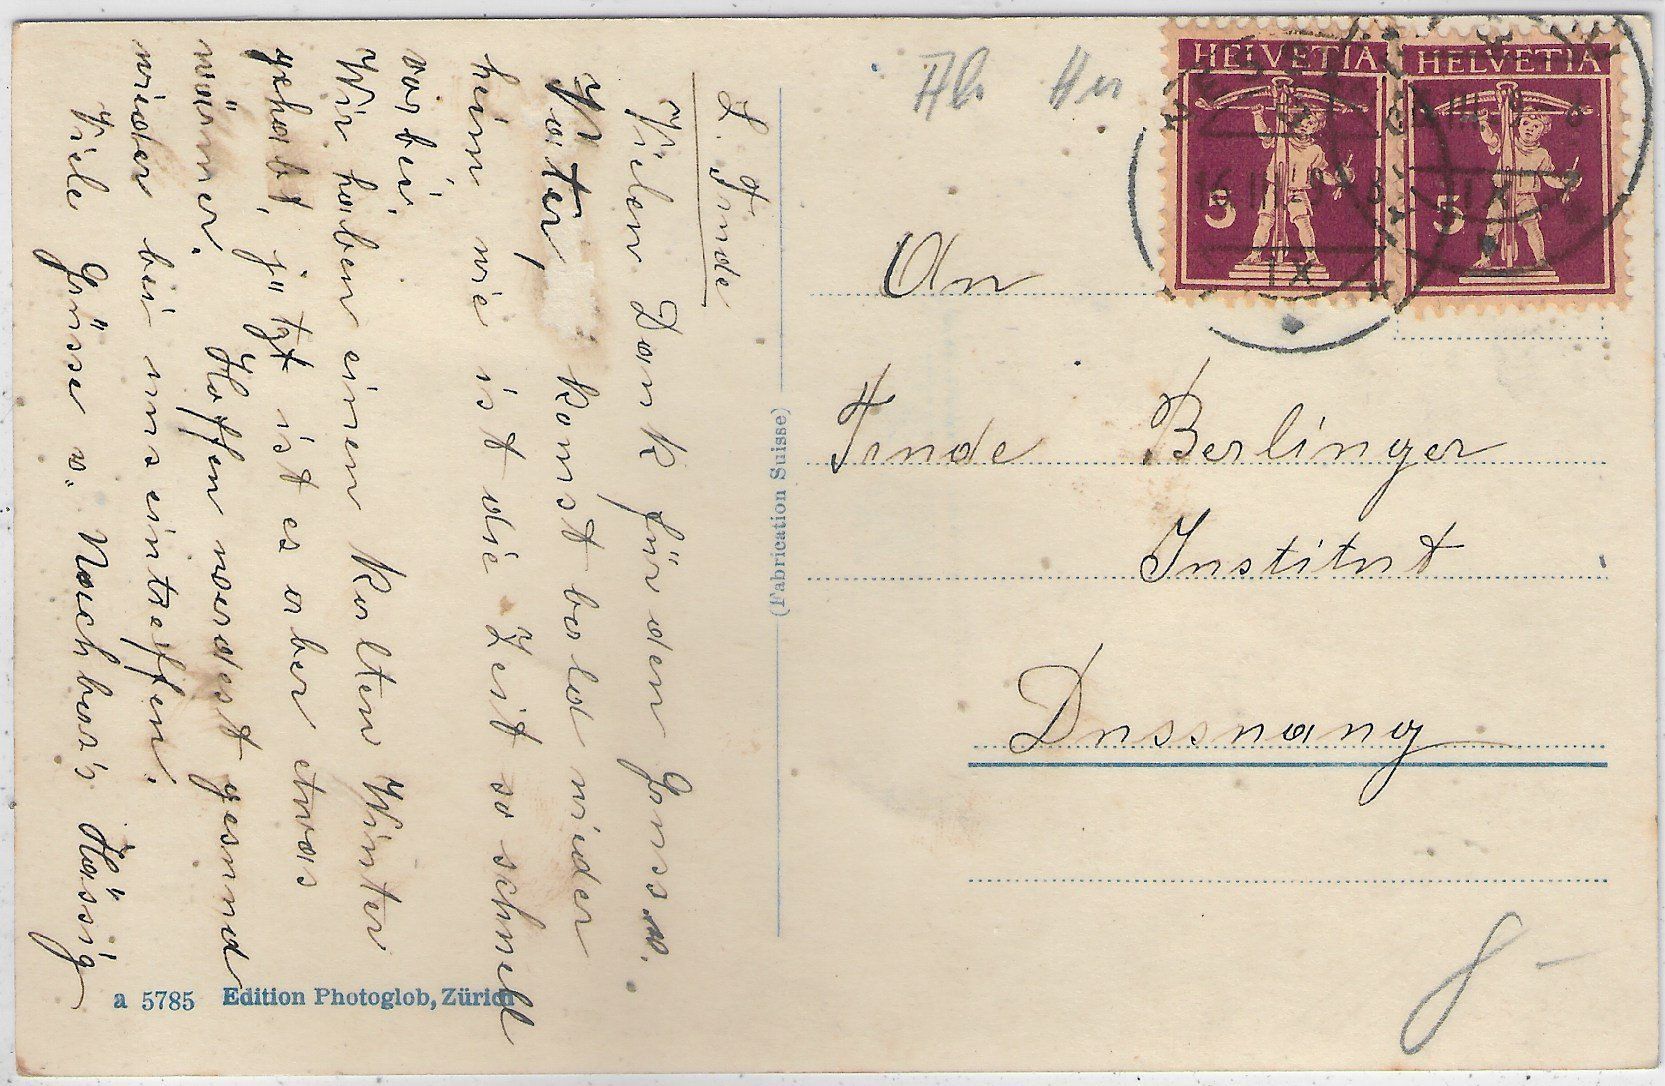 L. Trude
Vielen Dank für den Gruss.
Vater, komst bald wieder
heim wie ist die Zeit so schnell
vorbei.
Wir haben einen kalten Winter
gehabt, jetzt ist es aber etwas
wärmer. Hoffen werdest gesund
wieder bei uns eintreffen.
Viele Grüsse v. Nachbar's Hässig
(Fabrication Suisse)
a 5785 Edition Photoglob, Zürich
HELVETIA HELVETIA
5 5
16.III.
IX
An
Berlinger
Institut
Dussnang
8-